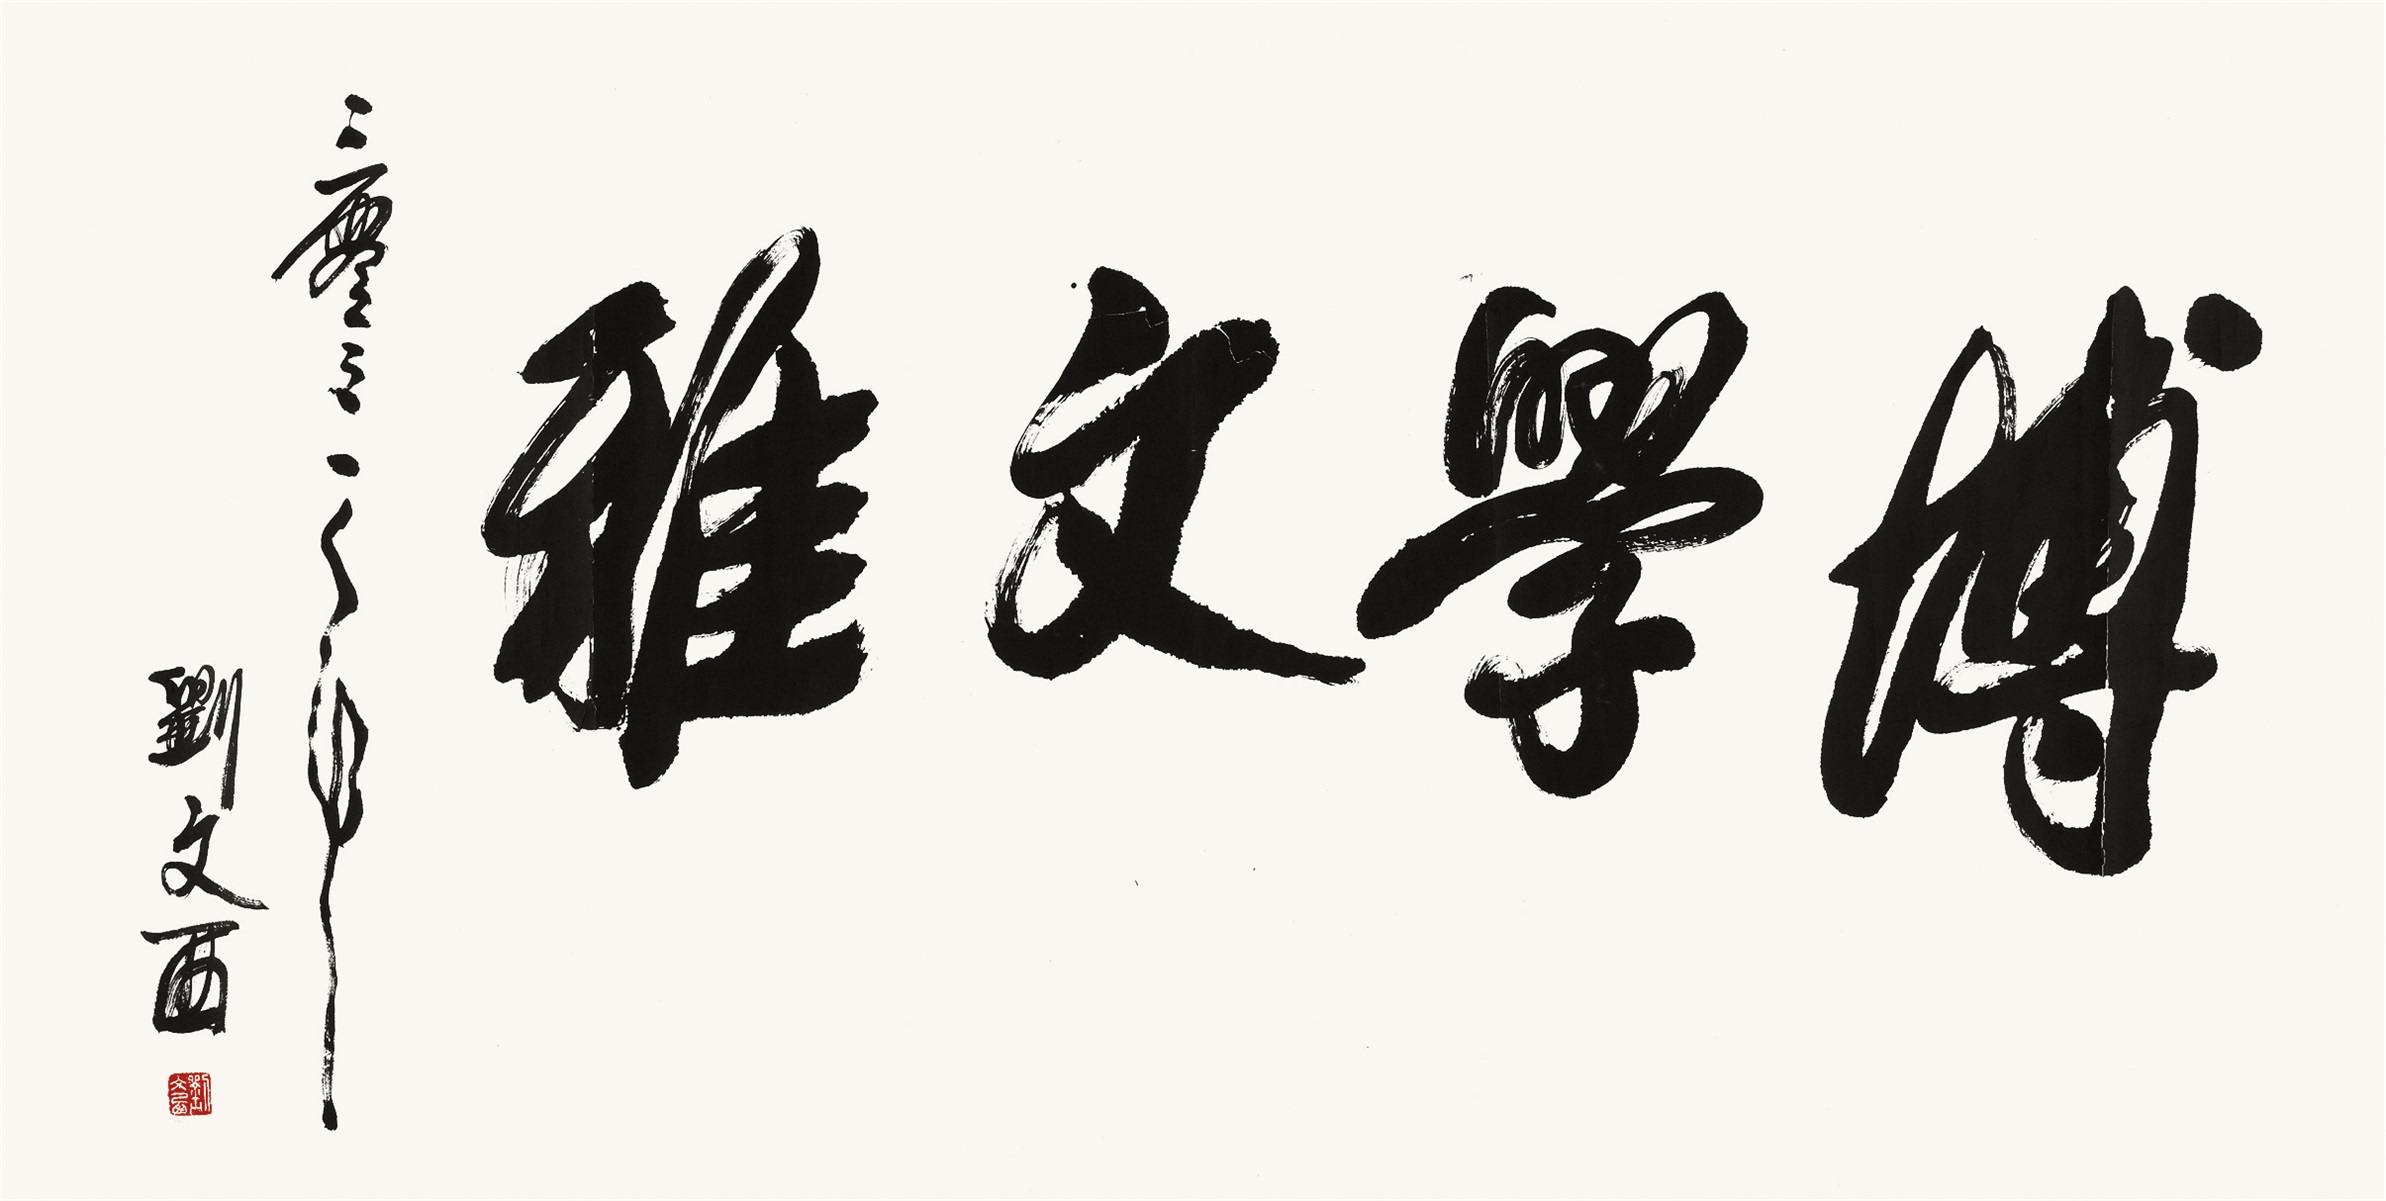 博學文雅
二零年
劉文西
劉文西